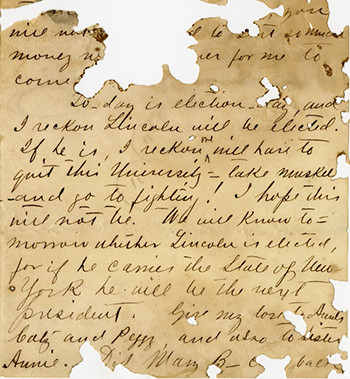 you
will not to sent so much
money for me to
come
To-day is election-day, and
I reckon Lincoln will be elected.
If he is, I reckon we will have to
quit this University - take musket
- and go to fighting! I hope this
will not be. We will know to=
morrow whether Lincoln is elected,
for if he carries the State of New
York he will be the next
president. Give my love to Aunts
Caty and Peggy, and also to sister
Annie. Did Mary B- back